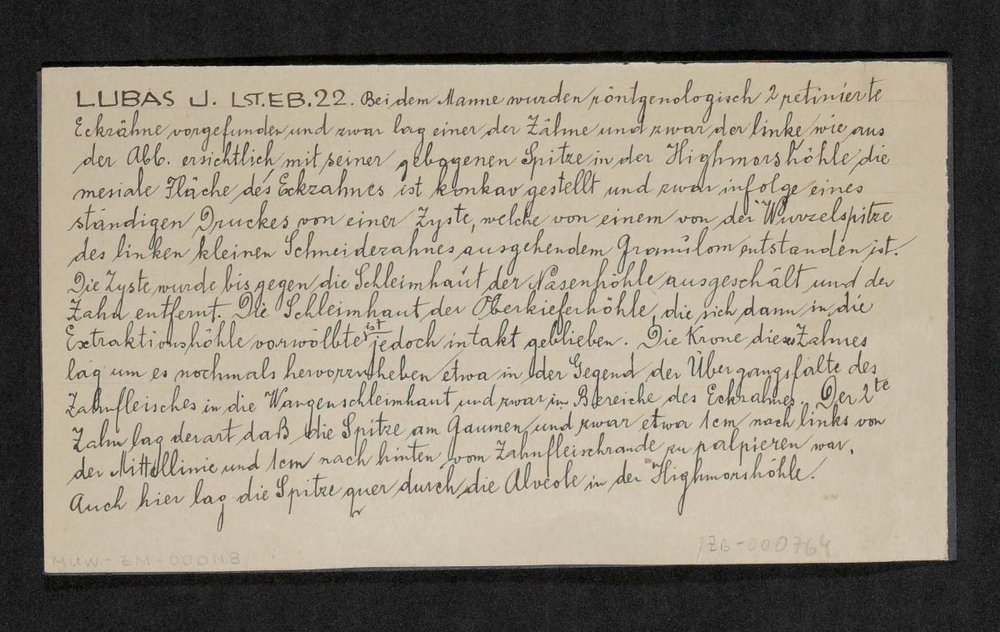 LUBAS J. LST.EB.22. Bei dem Manne wurden röntgenologisch 2 retinierte
Eckzähne vorgefunden und zwar lag einer der Zähne und zwar der linke wie aus
der Abb. ersichtlich mit seiner gebogenen Spitze in der Highmorshöhle die
mesiale Fläche des Eckzahnes ist konkav gestellt und zwar infolge eines
ständigen Druckes von einer Zyste, welche von einem von der Wurzelspitze
des linken kleinen Schneidezahnes ausgehendem Granulom entstanden ist.
Die Zyste wurde bis gegen die Schleimhaut der Nasenhöhle ausgeschält und der
Zahn entfernt. Die Schleimhaut der Oberkieferhöhle, die sich dann in die
Extraktionshöhle vorwölbte ist jedoch intakt geblieben. Die Krone dieses Zahnes
lag um es nochmals hervorzuheben etwa in der Gegend der Übergangsfalte des
Zahnfleisches in die Wangenschleimhaut und zwar im Bereiche des Eckzahnes. Der 2te
Zahn lag derart daß die Spitze am Gaumen und zwar etwa 1cm nach links von
der Mittellinie und 1cm nach hinten vom Zahnfleischrande zu palpieren war.
Auch hier lag die Spitze quer durch die Alveole in der Highmorshöhle.
MUW-ZM-000118
ZB-000764